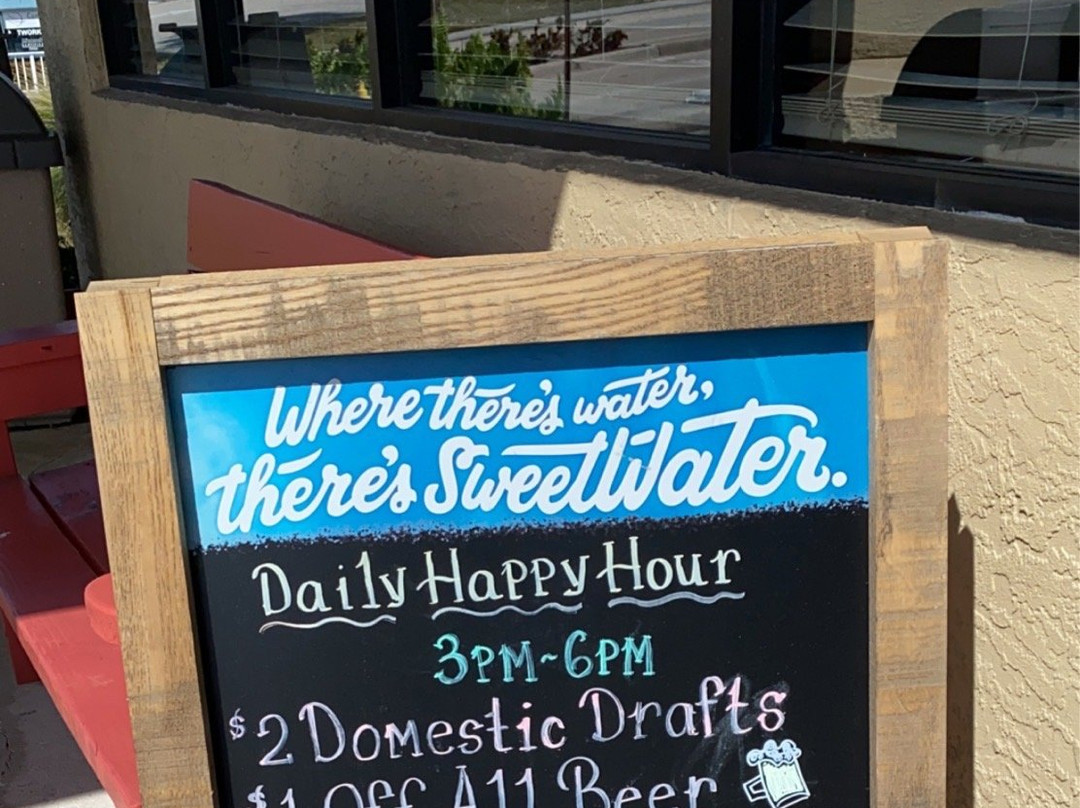 Where there's water,
there's SweetWater.
Daily Happy Hour
3PM~6PM
$2 Domestic Drafts
$1 Off All Beer